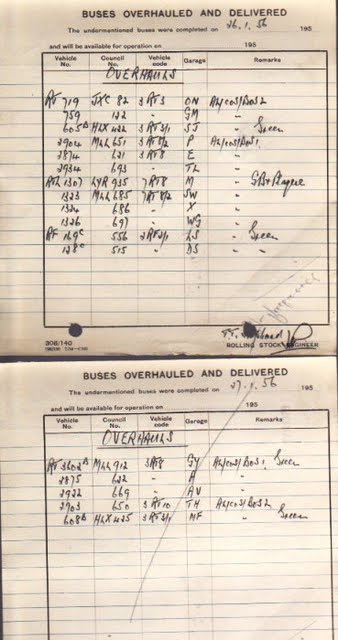 BUSES OVERHAULED AND DELIVERED
The undermentioned buses were completed on 26.1.56 195
and will be available for operation on 195
Vehicle No. Council No. Vehicle code Garage Remarks
OVERHAULS
RT 719 JXC 82 3RT3 ON
759 122 - GM - -
605 HLX 422 3RT3/1 SJ - Green
2904 MLL 651 3RT5/2 P
2874 621 3RT8 E - -
2934 693 - TL - -
RTL 1307 LYR 935 7RT8 M
1323 MLL 685 7RT8/2 SW - -
1324 686 - X - -
1326 697 - WG - -
RF 169C 556 2RF2/1 LS - Green
128C 515 - DS - -
308/140
ROLLING STOCK ENGINEER
BUSES OVERHAULED AND DELIVERED
The undermentioned buses were completed on 27.1.56 195
and will be available for operation on 195
Vehicle No. Council No. Vehicle code Garage Remarks
OVERHAULS
RT 3602 MLL 912 3RT8 GY Green
2875 622 - A -
2922 669 - AV -
2903 650 3RT10 TH
608 HLX 425 3RT3/1 MF - Green